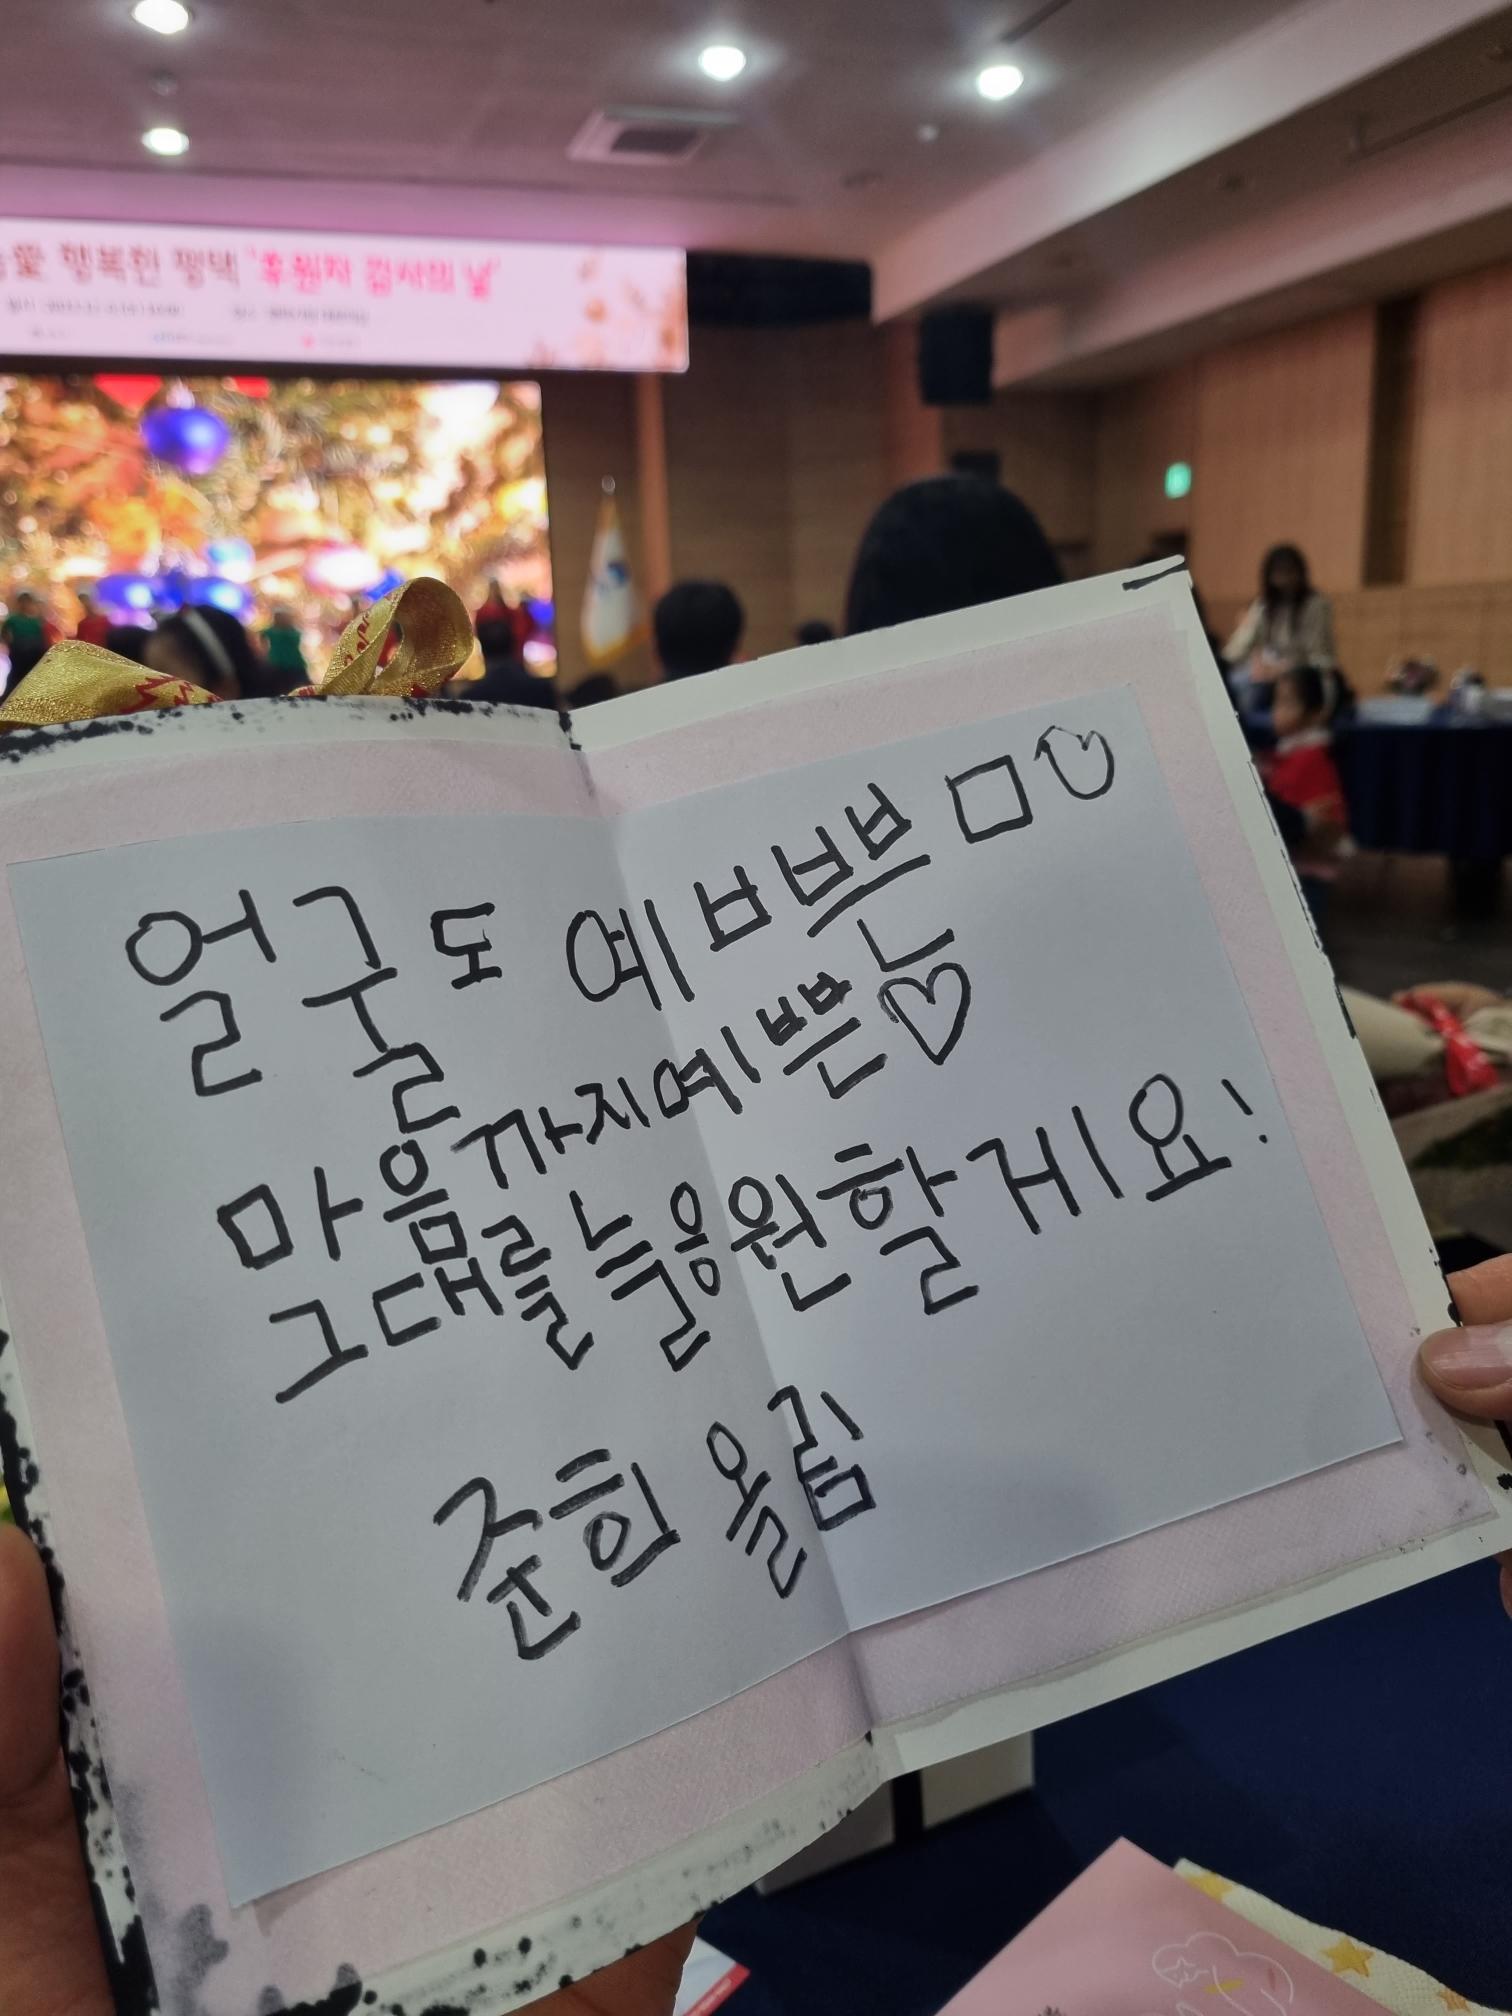 愛 행복한 평택 '후원자 감사의 날'
얼굴도 예ㅂ쁜 ㅁ♡
마음까지예쁜♡
그대를 늘응원할게요!
준희 올림